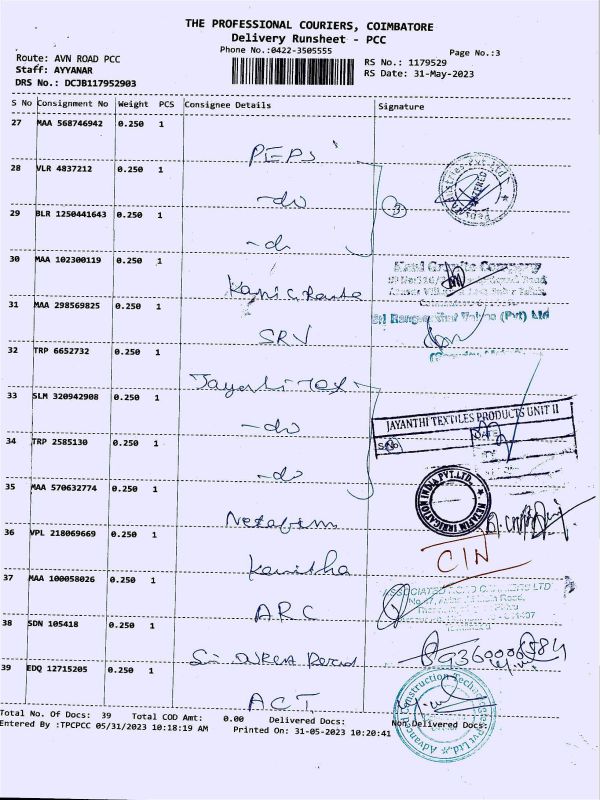 THE PROFESSIONAL COURIERS, COIMBATORE
Delivery Runsheet - PCC
Phone No.:0422-3505555
Page No.:3
Route: AVN ROAD PCC
Staff: AYYANAR
DRS No.: DCJB117952903
RS No.: 1179529
RS Date: 31-May-2023
S No Consignment No Weight PCS Consignee Details Signature
27 MAA 568746942 0.250 1
PEPS
28 VLR 4837212 0.250 1
-do
29 BLR 1250441643 0.250 1
-do
3
30 MAA 102300119 0.250 1
Granite Company
31 MAA 298569825 0.250 1
SRV
(Pvt) Ltd
32 TRP 6652732 0.250 1
Jayanthi Tex
33 SLM 320942908 0.250 1
-do
JAYANTHI TEXTILES PRODUCTS UNIT II
S.No
DATE
34 TRP 2585130 0.250 1
-do
35 MAA 570632774 0.250 1
Netafim
NETAFIM IRRIGATION INDIA PVT.LTD.
36 VPL 218069669 0.250 1
Kavitha
CIN
37 MAA 100058026 0.250 1
ARC
ASSOCIATED ROAD CARRIERS LTD
38 SDN 105418 0.250 1
Sri DURGA
9360006584
39 EDQ 12715205 0.250 1
ACT
Advanced Construction Technologies Pvt Ltd.
Total No. Of Docs: 39 Total COD Amt: 0.00 Delivered Docs: Non Delivered Docs:
Entered By :TPCPCC 05/31/2023 10:18:19 AM Printed On: 31-05-2023 10:20:41